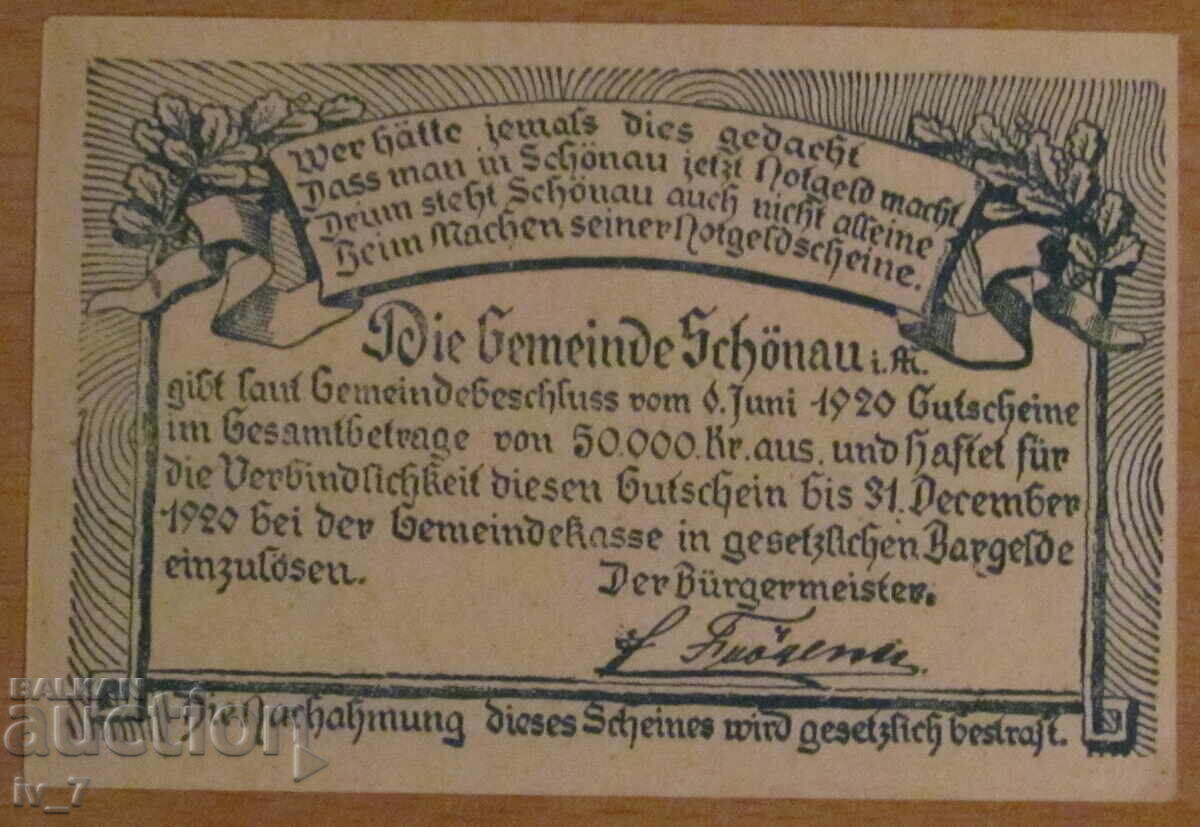 Wer hätte jemals dies gedacht
Dass man in Schönau jetzt Notgeld macht
Drum steht Schönau auch nicht alleine
Beim Machen seiner Notgeldscheine.
Die Gemeinde Schönau i. M.
gibt laut Gemeindebeschluss vom 6. Juni 1920 Gutscheine
im Gesamtbetrage von 50.000 Kr. aus, und haftet für
die Verbindlichkeit diesen Gutschein bis 31. December
1920 bei der Gemeindekasse in gesetzlichen Bargelde
einzulösen.
Der Bürgermeister.
Die Nachahmung dieses Scheines wird gesetzlich bestraft.
BALKAN
auction
iv_7